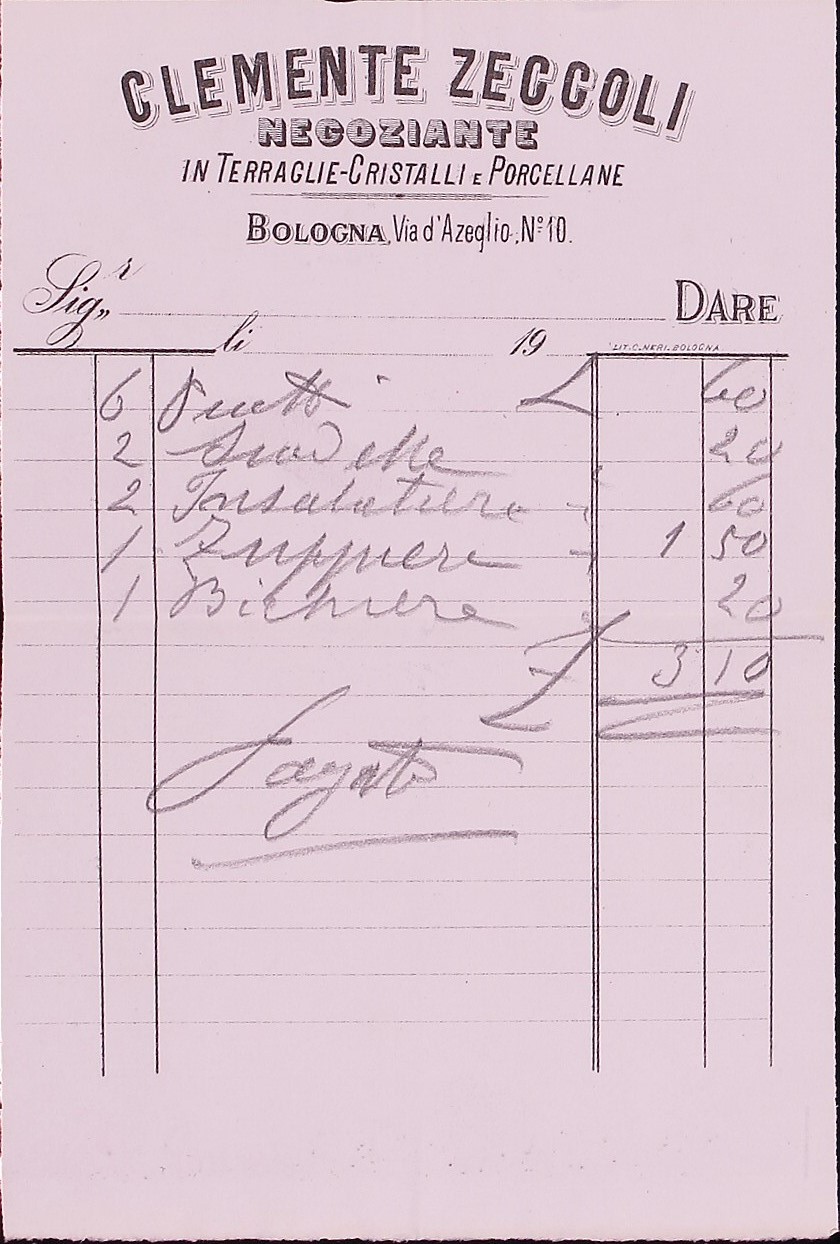 CLEMENTE ZECCOLI
NEGOZIANTE
IN TERRAGLIE-CRISTALLI E PORCELLANE
BOLOGNA, Via d'Azeglio, Nº 10.
Sig.r DARE
li 19
LIT. C. NERI. BOLOGNA
6 L 60
2 20
2 Insalatiere 60
1 Zuppiere 1 50
1 Bichiere 20
L 3 10
Pagato